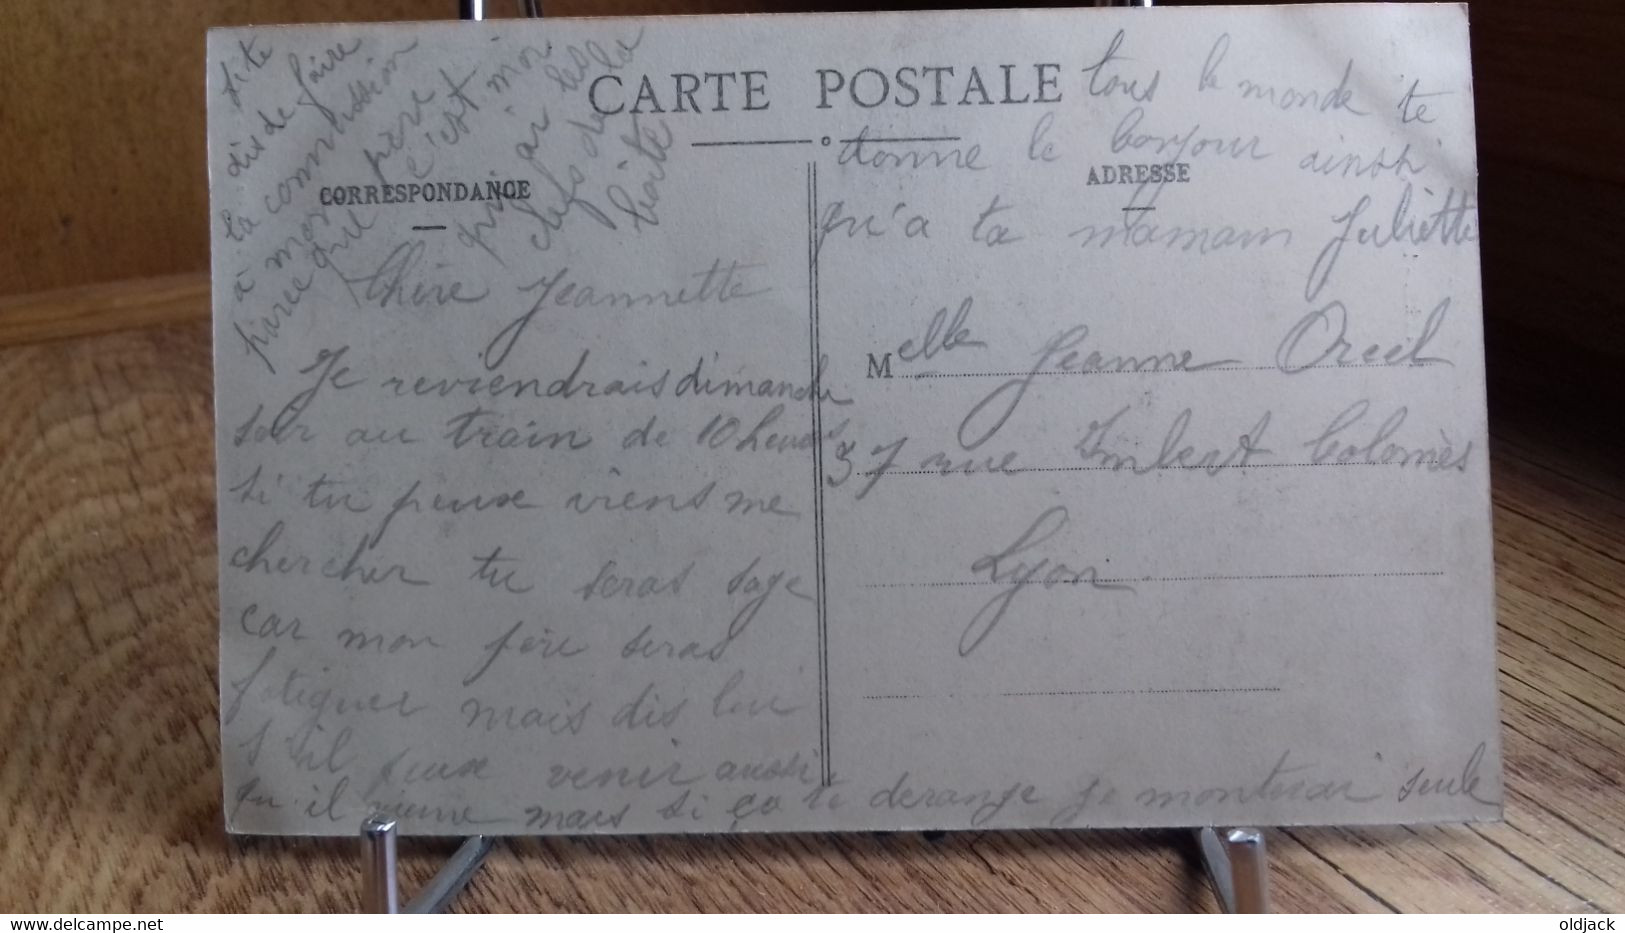 CARTE POSTALE
CORRESPONDANCE
ADRESSE
Chère Jeannette
Je reviendrais dimanche
soir au train de 10 heures
si tu peux viens me
chercher tu seras sage
car mon père seras
fatiguer mais dis lui
s'il peux venir aussi
qu'il vienne mais si ça te derange je monterai seule
tous le monde te
donne le bonjour ainsi
qu'a ta maman Juliette
Melle Jeanne Orcel
37 rue Imbert Colomès
Lyon
dis de faire
la commission
à mon père
parce que c'est moi
qui ai les
clefs de la
boite
oldjack